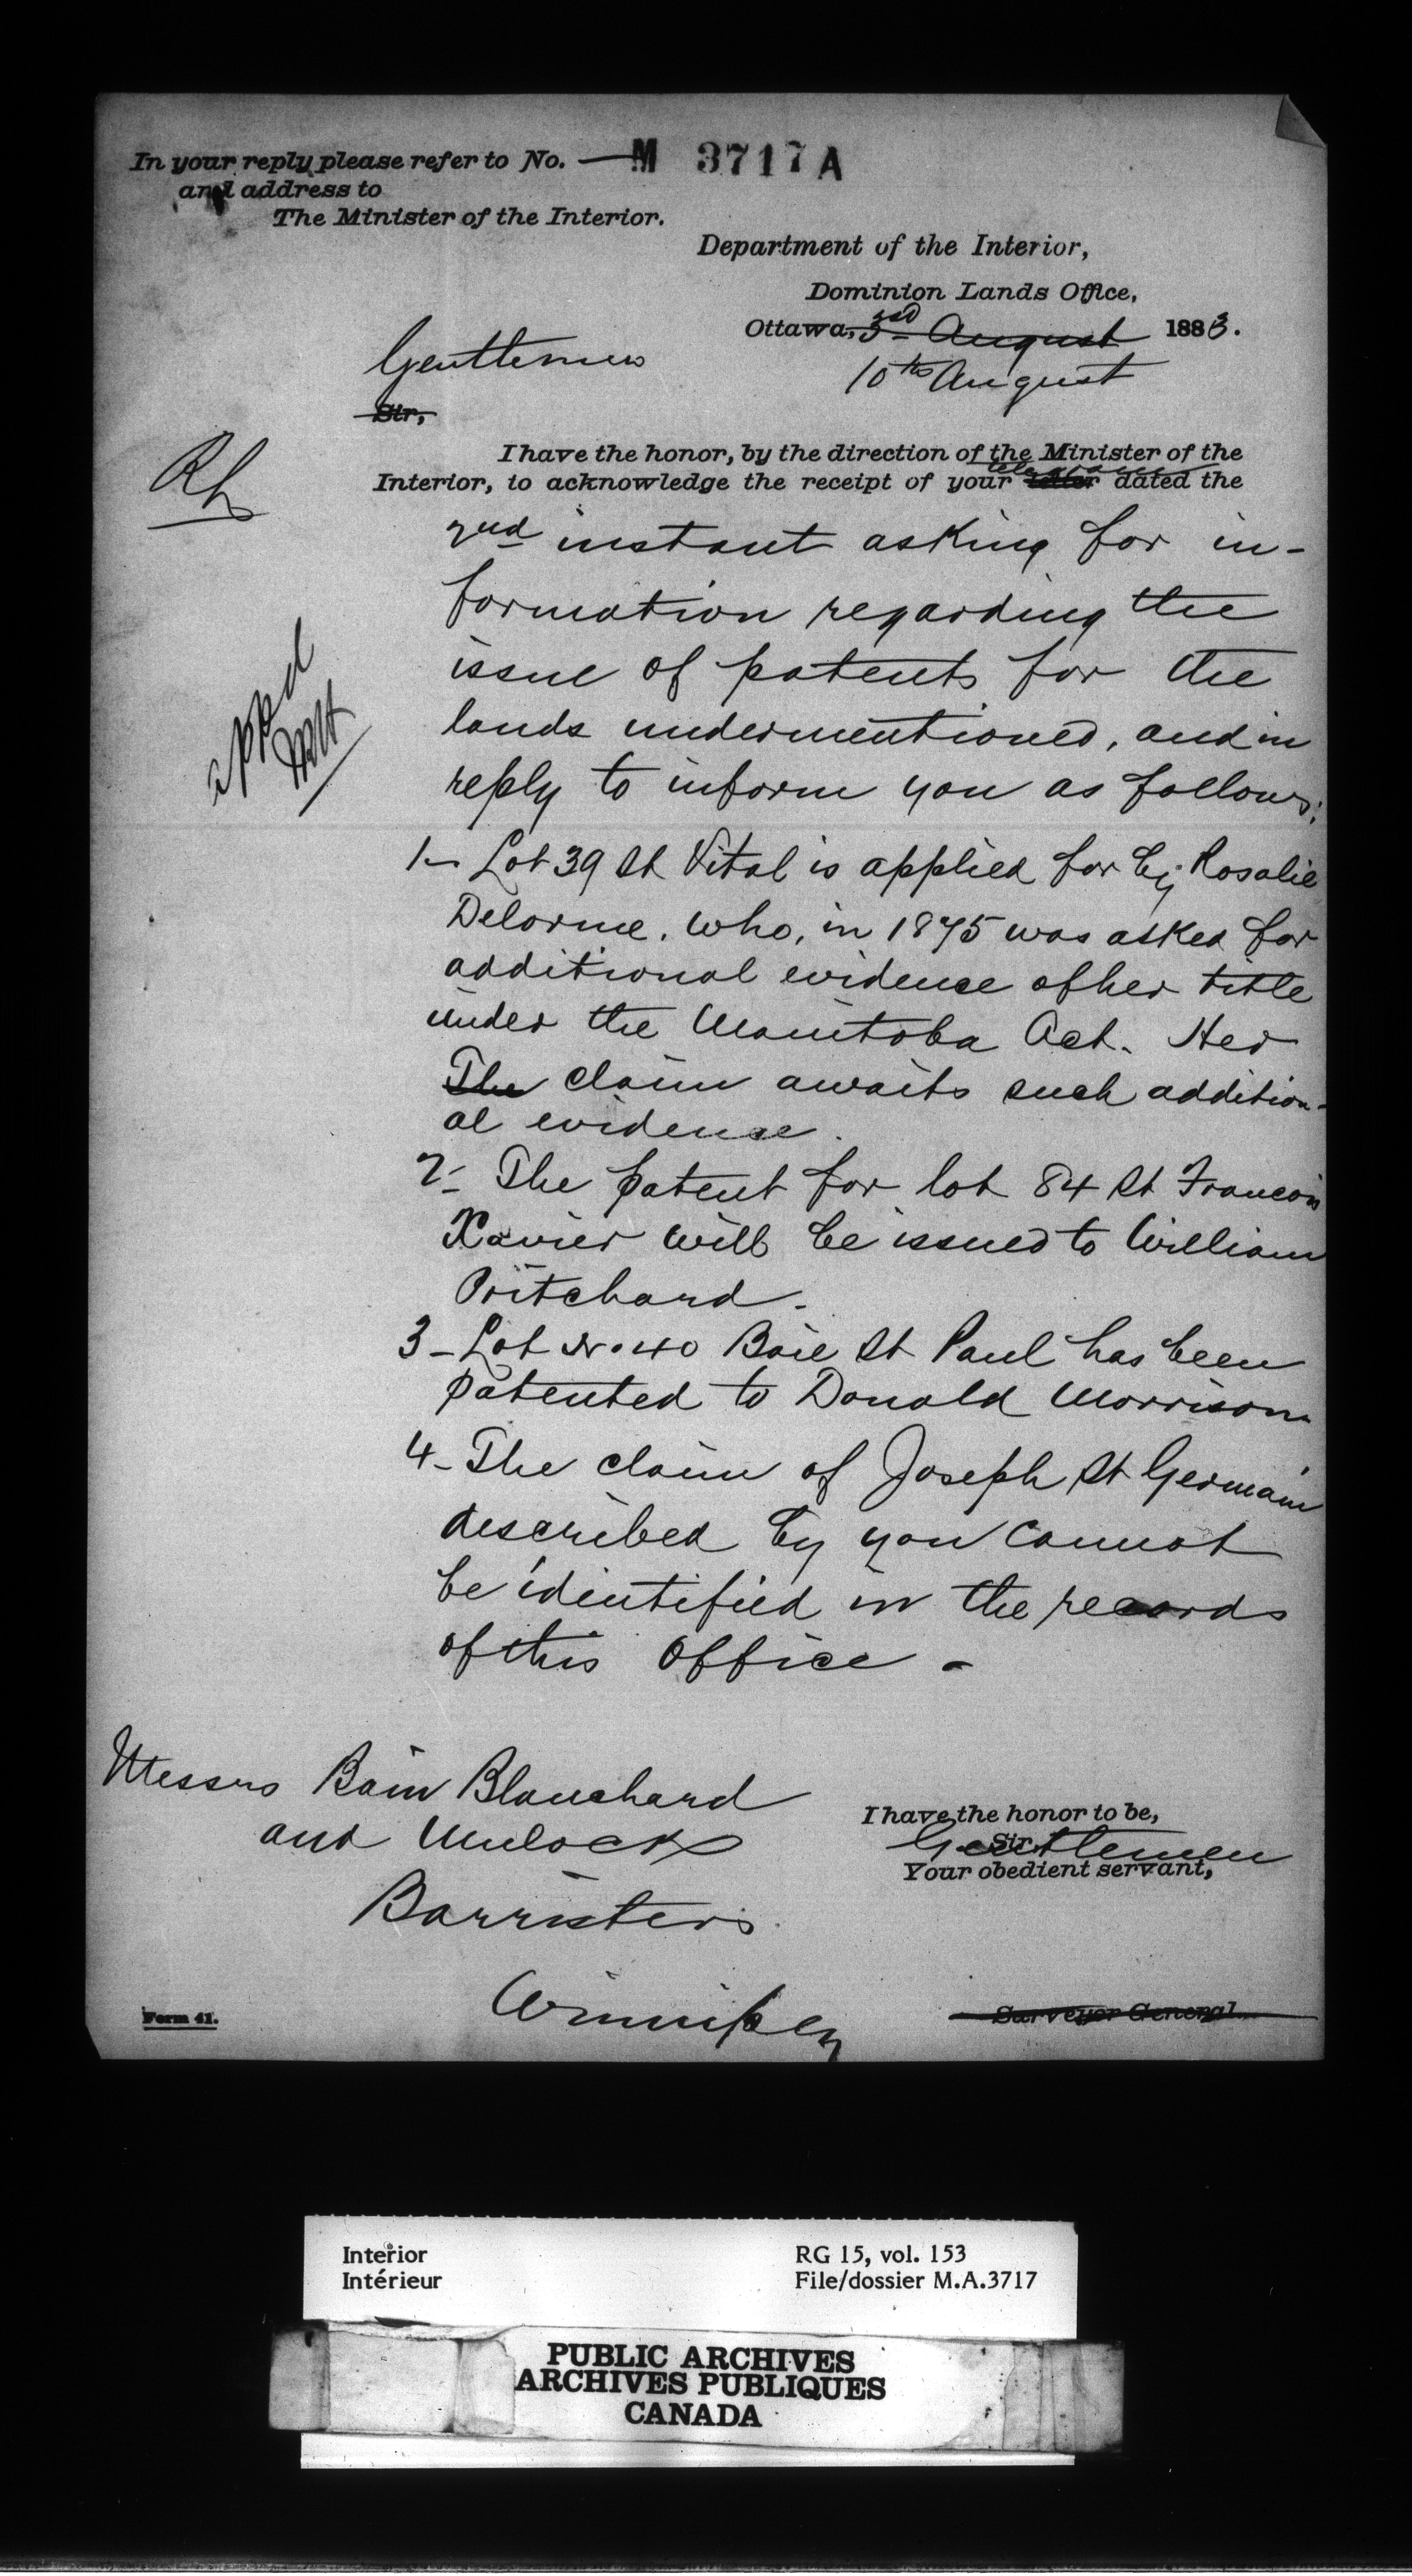 In your reply please refer to No. — M 3717 A
and address to
The Minister of the Interior.
Department of the Interior,
Dominion Lands Office,
Ottawa, 3rd August 1883.
10th August
Gentlemen
Sir,
Rh
I have the honor, by the direction of the Minister of the
telegram
Interior, to acknowledge the receipt of your letter dated the
2nd instant asking for in-
formation regarding the
issue of patents for the
lands undermentioned, and in
reply to inform you as follows;
appd
1- Lot 39 St Vital is applied for by Rosalie
Delorme, who, in 1875 was asked for
additional evidence of her title
under the Manitoba Act. Her
The claim awaits such addition-
al evidence.
2- The patent for lot 84 St Francois
Xavier will be issued to William
Pritchard.
3- Lot No. 40 Baie St Paul has been
patented to Donald Morrison.
4- The claim of Joseph St Germain
described by you cannot
be identified in the records
of this Office -
Messrs Bain Blanchard
and Mulock
Barristers
Winnipeg
I have the honor to be,
Sir,
Gentlemen
Your obedient servant,
Surveyor General
Form 41.
Interior
Intérieur
RG 15, vol. 153
File/dossier M.A.3717
PUBLIC ARCHIVES
ARCHIVES PUBLIQUES
CANADA